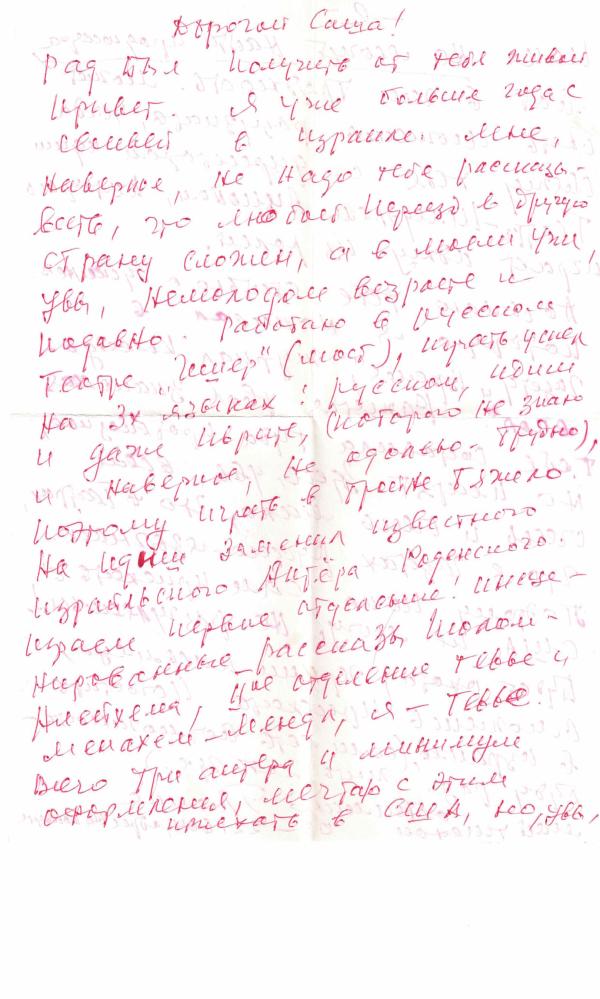 Дорогой Саша!
Рад был получить от тебя живой
привет. Я уже больше года с
семьей в Израиле. Мне,
наверное, не надо тебе рассказы-
вать, что любой переезд в другую
страну сложен, а в моем уже,
увы, немолодом возрасте и
подавно. Работаю в русском
театре „Гешер" (мост), играть успел
на 3х языках: русском, идиш
и даже иврите, (которого не знаю
и наверное, не одолею - трудно),
поэтому играть в тройне тяжело.
На идиш заменил известного
израильского актёра Роденского.
Играем первое отделение: инсце-
нированные рассказы Шолом-
Алейхема, IIое отделение Тевье и
Менахем-Мендл, я - Тевье.
Всего три актера и минимум
оформления, мечтаю с этим
приехать в США, но, увы,